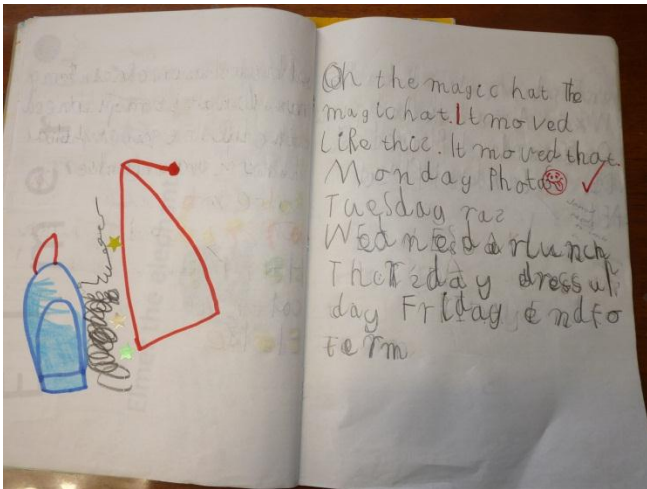 Oh the magic hat. The
magic hat. It moved
like thic. It moved that.
Monday Photo
Tuesday raz
Wednesda rlunch
Thorzday dressul
day Friday endfo
term